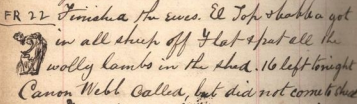 FR 22 Finished the Ewes. El Top & got
in all sheep off Flat & put all the
wolly lambs in the shed. 16 left tonight
Canon Webb called, but did not come to